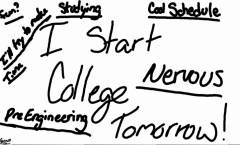 Fun?
Studying
Cool Schedule
I'll try to make
Time
I Start
College
Nervous
Pre Engineering
Tomorrow!